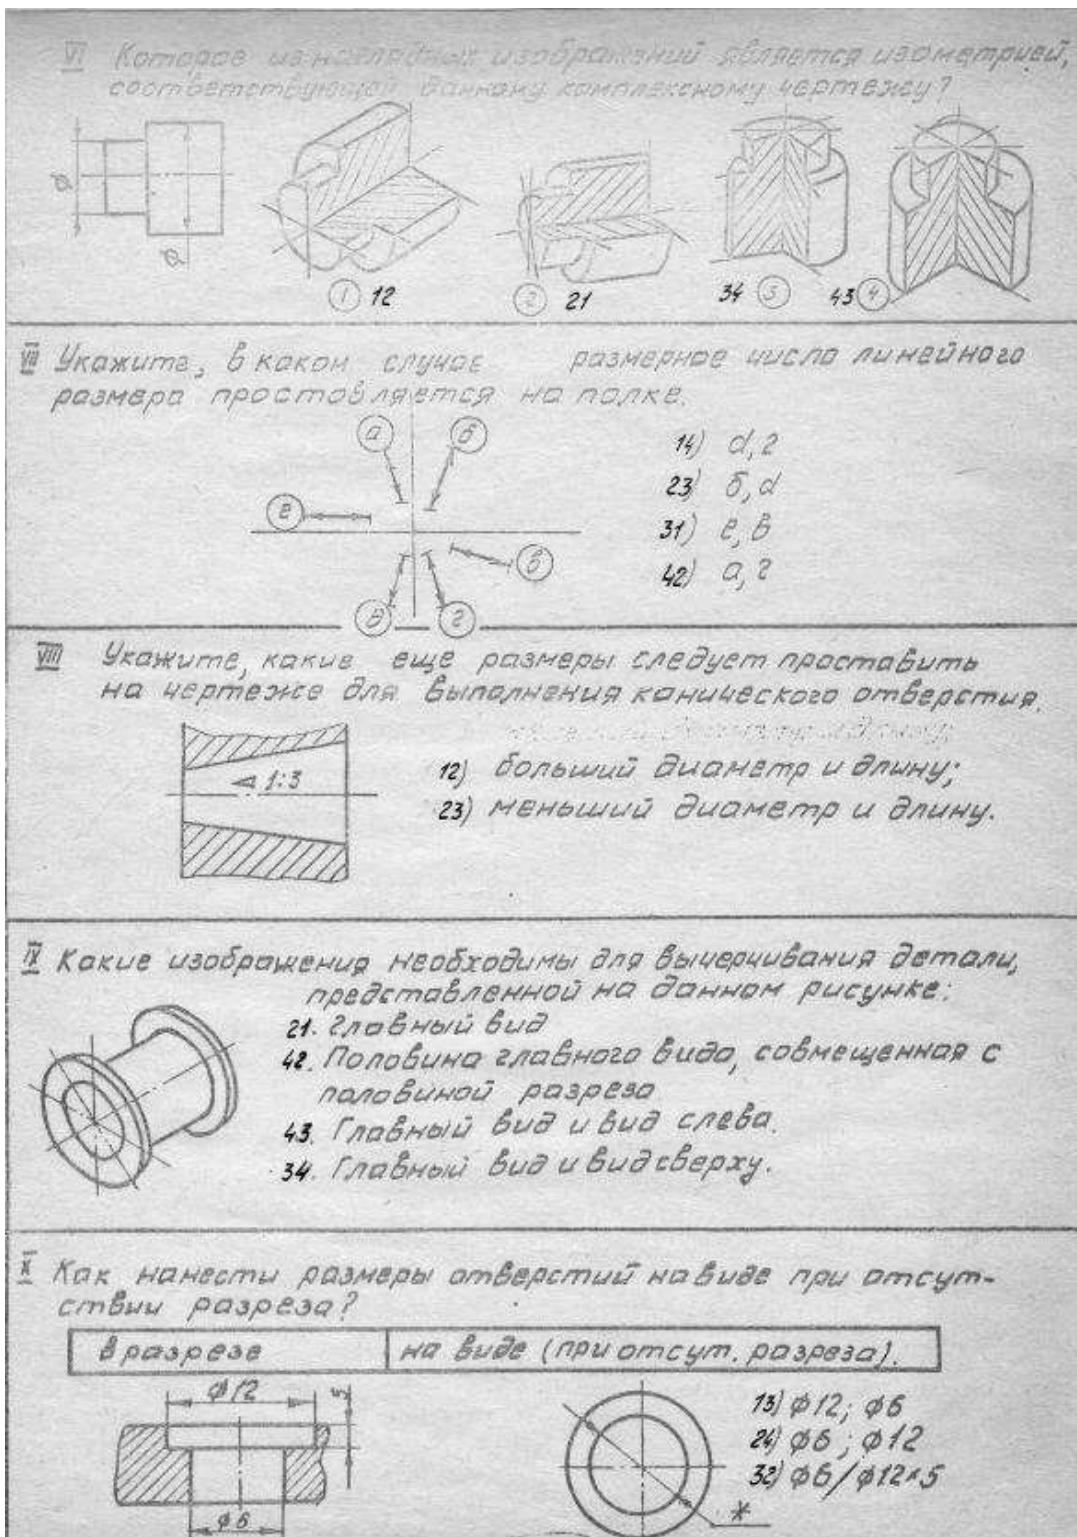 VI Которое из наглядных изображений является изометрией,
соответствующей данному комплексному чертежу?
ϕ
ϕ
1 12
2 21
34 3
43 4
VII Укажите, в каком случае размерное число линейного
размера простовляется на полке.
а
б
е
в
д
г
14) d, г
23) б, d
31) е, в
42) а, г
VIII Укажите, какие еще размеры следует проставить
на чертеже для выполнения канического отверстия.
1:3
12) больший диаметр и длину;
23) меньший диаметр и длину.
IX Какие изображения необходимы для вычерчивания детали,
представленной на данном рисунке:
21. Главный вид
42. Половина главного вида, совмещенная с
половиной разреза
43. Главный вид и вид слева.
34. Главный вид и вид сверху.
X Как нанести размеры отверстий на виде при отсут-
ствии разреза?
в разрезе на виде (при отсут. разреза).
ϕ12
5
ϕ6
*
13) ϕ12; ϕ6
24) ϕ6; ϕ12
32) ϕ6/ϕ12×5